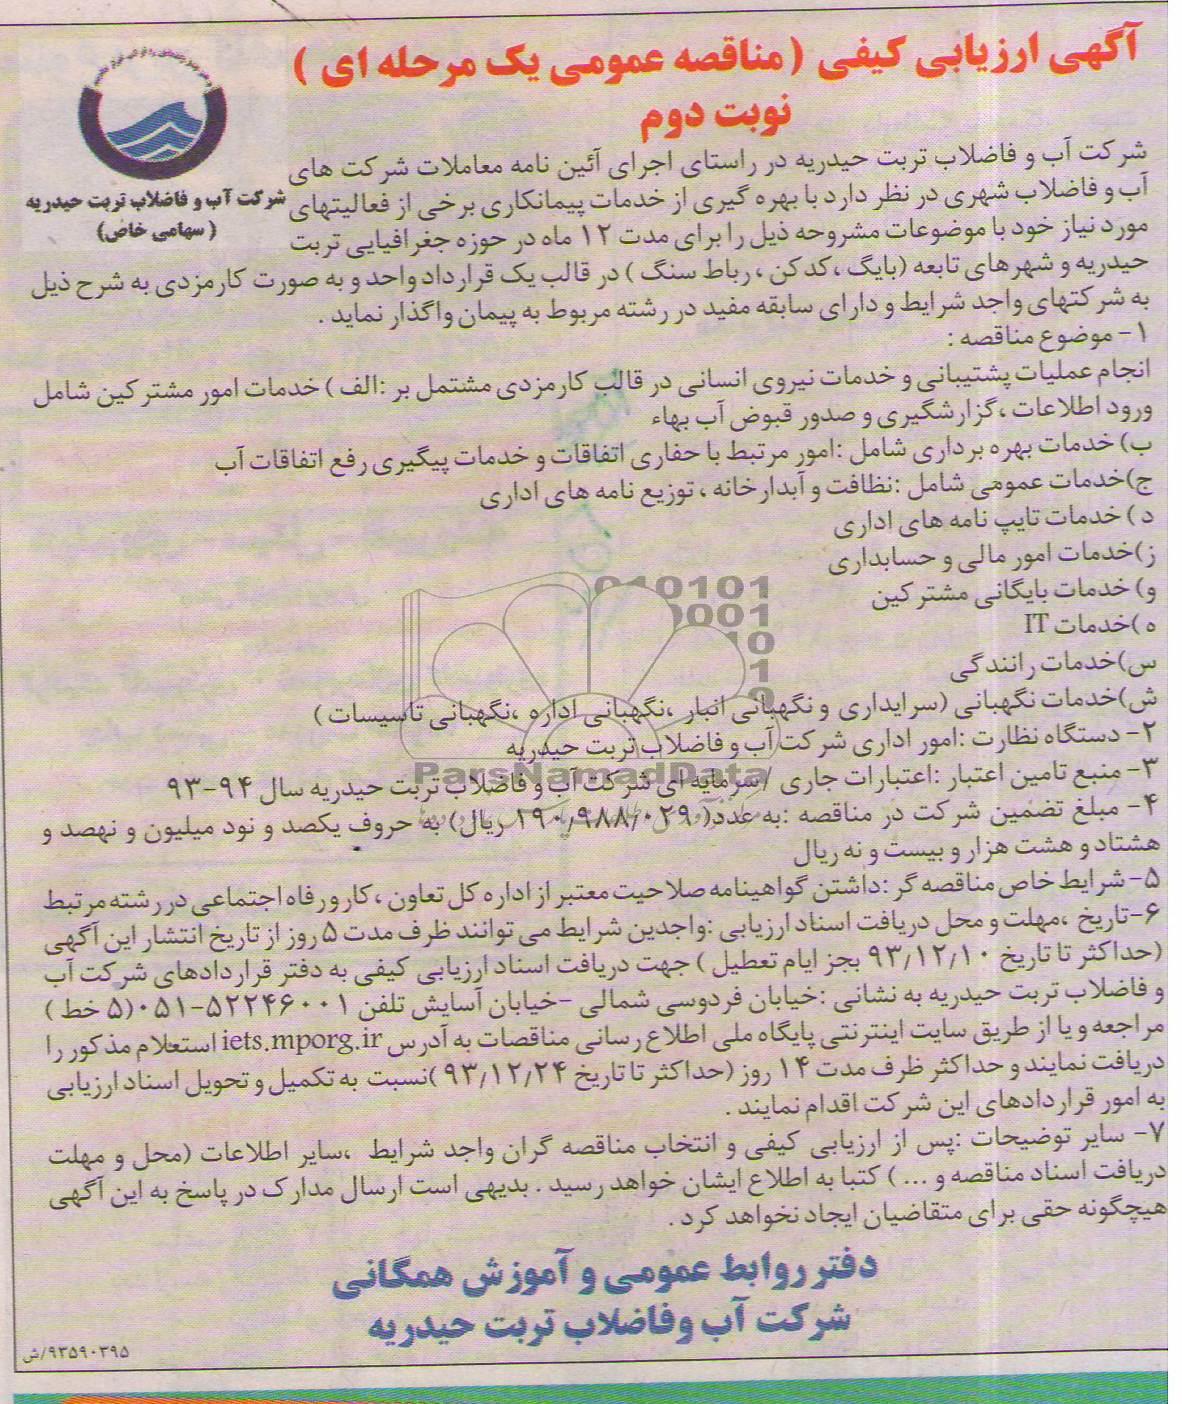 آگهی ارزیابی کیفی ( مناقصه عمومی یک مرحله ای )
نوبت دوم
شرکت آب و فاضلاب تربت حیدریه
( سهامی خاص)
شرکت آب و فاضلاب تربت حیدریه در راستای اجرای آئین نامه معاملات شرکت های
آب و فاضلاب شهری در نظر دارد با بهره گیری از خدمات پیمانکاری برخی از فعالیتهای
مورد نیاز خود با موضوعات مشروحه ذیل را برای مدت ۱۲ ماه در حوزه جغرافیایی تربت
حیدریه و شهرهای تابعه (بایگ ،کدکن ، رباط سنگ ) در قالب یک قرارداد واحد و به صورت کارمزدی به شرح ذیل
به شرکتهای واجد شرایط و دارای سابقه مفید در رشته مربوط به پیمان واگذار نماید .
۱- موضوع مناقصه :
انجام عملیات پشتیبانی و خدمات نیروی انسانی در قالب کارمزدی مشتمل بر :الف ) خدمات امور مشترکین شامل
ورود اطلاعات ،گزارشگیری و صدور قبوض آب بهاء
ب) خدمات بهره برداری شامل :امور مرتبط با حفاری اتفاقات و خدمات پیگیری رفع اتفاقات آب
ج)خدمات عمومی شامل :نظافت و آبدارخانه ، توزیع نامه های اداری
د ) خدمات تایپ نامه های اداری
ز)خدمات امور مالی و حسابداری
و) خدمات بایگانی مشترکین
ه )خدمات IT
س)خدمات رانندگی
ش)خدمات نگهبانی (سرایداری و نگهبانی انبار ،نگهبانی اداره ،نگهبانی تاسیسات )
۲- دستگاه نظارت :امور اداری شرکت آب و فاضلاب تربت حیدریه
۳- منبع تامین اعتبار :اعتبارات جاری /سرمایه ای شرکت آب و فاضلاب تربت حیدریه سال ۹۴-۹۳
ParsNamadData
۴- مبلغ تضمین شرکت در مناقصه :به عدد( ۱۹۰٫۹۸۸٫۰۲۹ ریال) به حروف یکصد و نود میلیون و نهصد و
هشتاد و هشت هزار و بیست و نه ریال
۵- شرایط خاص مناقصه گر :داشتن گواهینامه صلاحیت معتبر از اداره کل تعاون ،کار و رفاه اجتماعی در رشته مرتبط
۶-تاریخ ،مهلت و محل دریافت اسناد ارزیابی :واجدین شرایط می توانند ظرف مدت ۵ روز از تاریخ انتشار این آگهی
(حداکثر تا تاریخ ۹۳٫۱۲٫۱۰ بجز ایام تعطیل ) جهت دریافت اسناد ارزیابی کیفی به دفتر قراردادهای شرکت آب
و فاضلاب تربت حیدریه به نشانی :خیابان فردوسی شمالی -خیابان آسایش تلفن ۵۲۲۴۶۰۰۱-۰۵۱(۵ خط )
مراجعه و یا از طریق سایت اینترنتی پایگاه ملی اطلاع رسانی مناقصات به آدرس iets.mporg.ir استعلام مذکور را
دریافت نمایند و حداکثر ظرف مدت ۱۴ روز (حداکثر تا تاریخ ۹۳٫۱۲٫۲۴ )نسبت به تکمیل و تحویل اسناد ارزیابی
به امور قراردادهای این شرکت اقدام نمایند .
۷- سایر توضیحات :پس از ارزیابی کیفی و انتخاب مناقصه گران واجد شرایط ،سایر اطلاعات (محل و مهلت
دریافت اسناد مناقصه و ... ) کتبا به اطلاع ایشان خواهد رسید . بدیهی است ارسال مدارک در پاسخ به این آگهی
هیچگونه حقی برای متقاضیان ایجاد نخواهد کرد .
دفتر روابط عمومی و آموزش همگانی
شرکت آب وفاضلاب تربت حیدریه
۹۳۵۹۰۳۹۵/ش